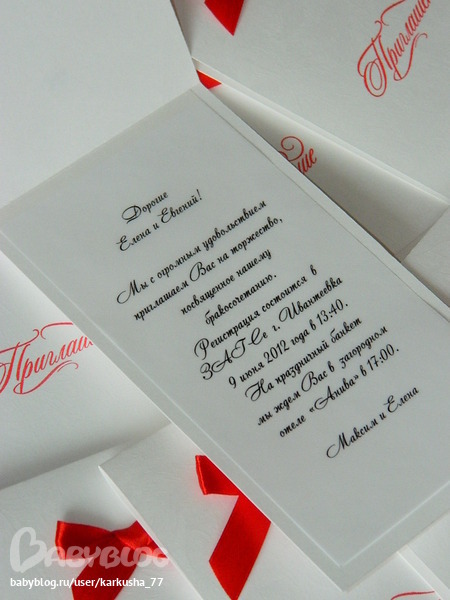 Приглаше
ие
Дорогие
Елена и Евгений!
Мы с огромным удовольствием
приглашаем Вас на торжество,
посвященное нашему
бракосочетанию.
Регистрация состоится в
ЗАГСе г. Ивантеевка
9 июня 2012 года в 13:40.
На праздничный банкет
мы ждем Вас в загородном
отеле «Анива» в 17:00.
Максим и Елена
Приглаше
BABYBLOG
babyblog.ru/user/karkusha_77